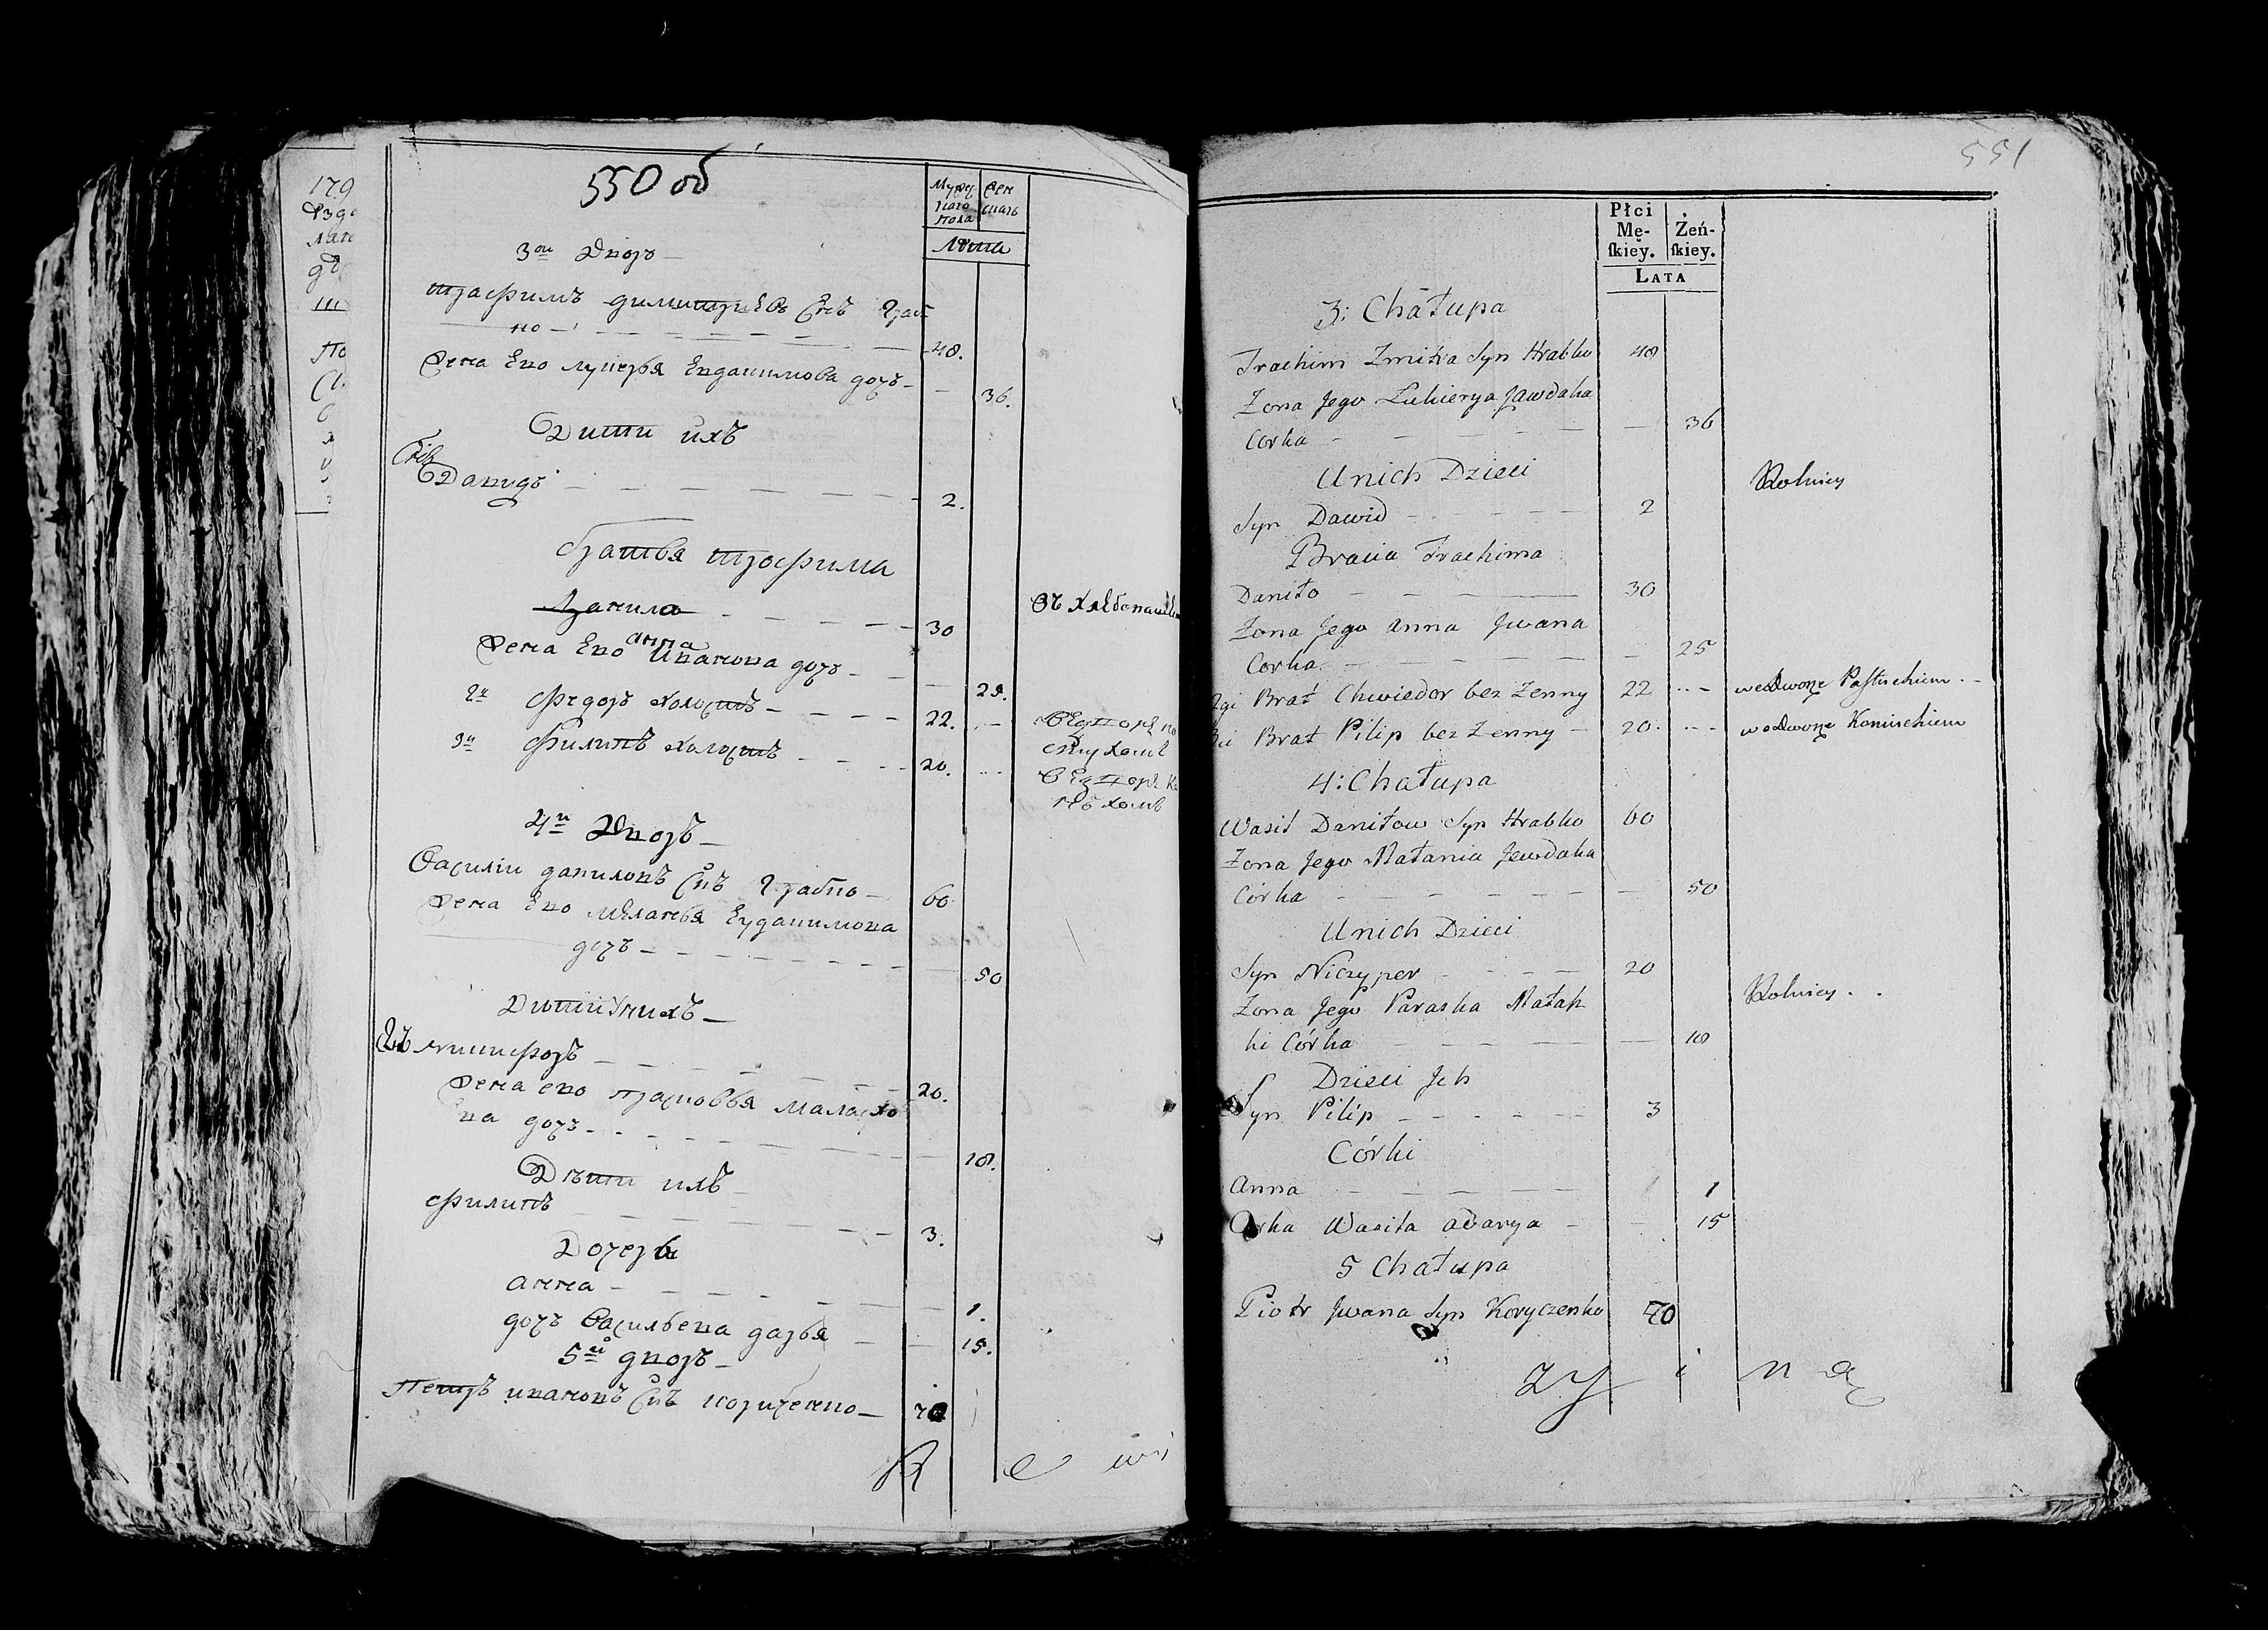 550 об
Мужескаго пола
Женскаго
Лѣта
3й Дворъ
Трофимъ Димитріевъ Снъ Граб
ко 48.
Жена Ево Лукерья Евдакимова дочь 36.
Дети ихъ
Снъ
Давидъ 2.
братья трофима
Данила 30
Жена Ево анна Иванова дочь 25.
2й Федоръ холостъ 22.
3й Филипъ холостъ 20.
4й Дворъ
Василіи даниловъ Снъ Грабко 60
Жена Ево Меланья Еудакимова
дочь 50
Дети У нихъ
никифоръ 20.
Жена ево прасковья
ва дочь 18.
Дети ихъ
филипъ 3.
Дочерь
анна 1.
дочь Васильева дарья 15.
5й дворъ
Петръ ивановъ Снъ Кориченко 70
551
Płci Mę-
ſkiey.
Żeń-
ſkiey.
LATA
3: Chałupa
Trachim Zmitra Syn Hrabko 48
Zona Jego Lukierya Jawdaka
Corka 36
Unich Dzieci
Rolnicy
Syn Dawid 2
Bracia Trachima
Daniło 30
Zona Jego Anna Jwana
Corka 25
2gi Brat Chwiedor bez Zenny 22 we Dworze Pastuchiem
3ci Brat Pilip bez Zenny 20 we Dworze Koniuchiem
4: Chałupa
Wasil Daniłow Syn Hrabko 60
Zona Jego Małania Jewdaka
Córka 50
Unich Dzieci
Syn Niczyper 20
Rolnicy
Zona Jego Paraska Małaſz
ki Córka 18
Dzieci Jch
Syn Pilip 3
Córki
Anna 1
Corka Wasila Adarya 15
5 Chałupa
Piotr Jwana Syn Koryczenko 70